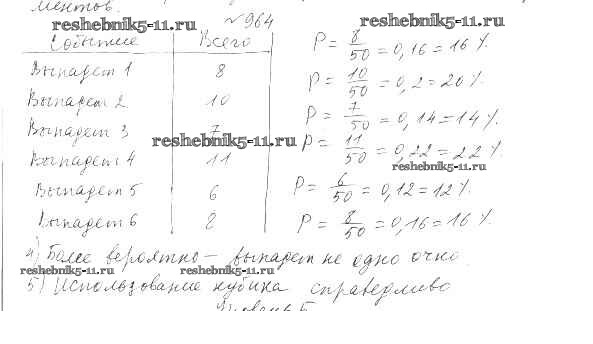 ментов.
№964
reshebnik5-11.ru reshebnik5-11.ru
Событие Всего P = 8/50 = 0,16 = 16 %.
Выпадет 1 8 P = 10/50 = 0,2 = 20 %.
Выпадет 2 10 P = 7/50 = 0,14 = 14 %.
Выпадет 3 7 P = 11/50 = 0,22 = 22 %.
reshebnik5-11.ru
Выпадет 4 11
reshebnik5-11.ru
Выпадет 5 6 P = 6/50 = 0,12 = 12 %.
Выпадет 6 8 P = 8/50 = 0,16 = 16 %.
а) Более вероятно – выпадет не одно очко.
reshebnik5-11.ru reshebnik5-11.ru
б) Использование кубика справедливо